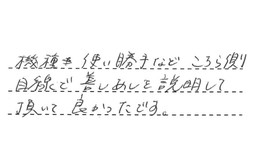 機種も 使い勝手など こちら側
目線で 善しあしを 説明して
頂いて 良かったです。